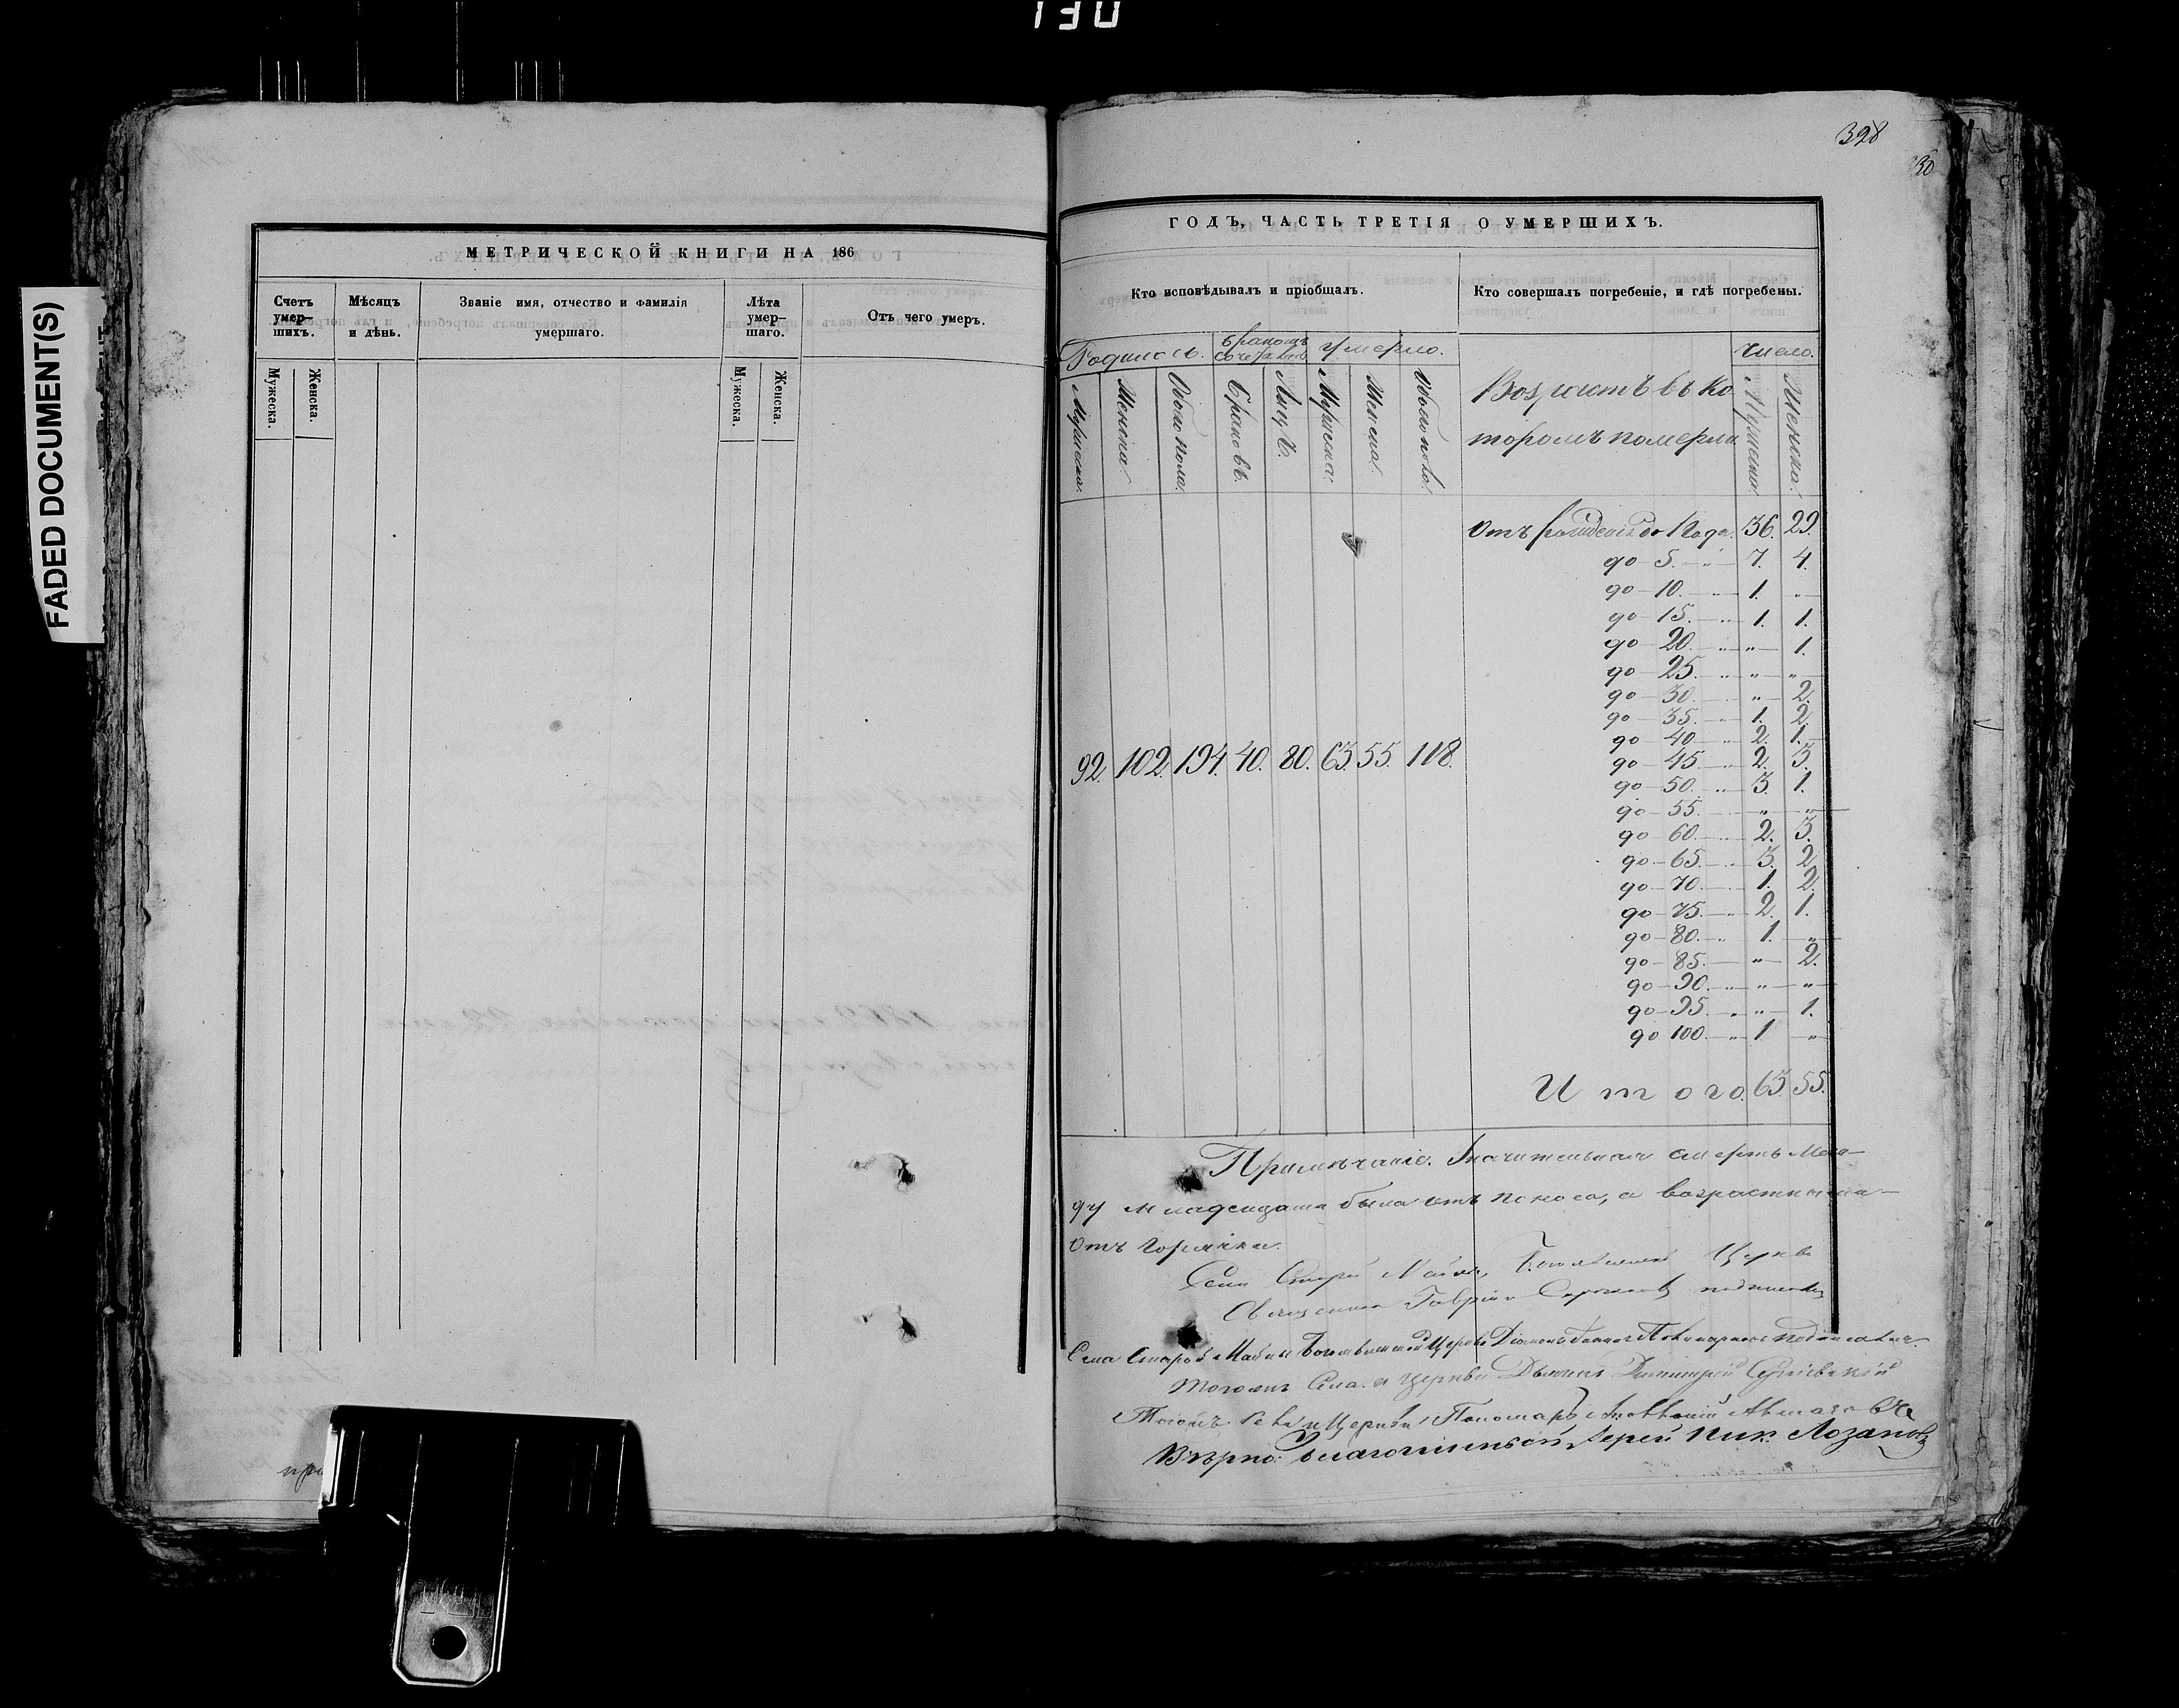 130
FADED DOCUMENT(S)
МЕТРИЧЕСКОЙ КНИГИ НА 186
Счетъ умер-шихъ.
Мужеска.
Женска.
Мѣсяцъ и дѣнь.
Званіе имя, отчество и фамилія умершаго.
Лѣта умер-шаго.
Мужеска.
Женска.
Отъ чего умеръ.
328
ГОДЪ, ЧАСТЬ ТРЕТІЯ О УМЕРШИХЪ.
Кто исповѣдывалъ и пріобщалъ.
Кто совершалъ погребеніе, и гдѣ погребены.
Родилось.
бракомъ
Умерло.
Число.
Мужеска.
Женска.
Обоего пола.
Браковъ.
Лицъ.
Мужеска.
Женска.
Обоего пола.
Возрастъ въ ко-
торомъ померли
Мужска.
Женска.
92. 102. 194. 40. 80. 63. 55. 118.
Отъ рожденія до 1 года. 36. 29.
до 5. „ 7. 4.
до 10. „ 1. „
до 15. „ 1. 1.
до 20. „ „ 1.
до 25. „ „ „
до 30. „ „ 2.
до 35. „ 1. 2.
до 40. „ 2. 1.
до 45. „ 2. 3.
до 50. „ 3. 1.
до 55. „ „ „
до 60. „ 2. 3.
до 65. „ 3. 2.
до 70. „ 1. 2.
до 75. „ 2. 1.
до 80. „ 1. „
до 85. „ „ 2.
до 90. „ „ „
до 95. „ „ 1.
до 100. „ 1 „
Итого. 63. 55.
Примѣчаніе. Значительная смерть меж-
ду младенцами была отъ поноса, а возрастными
отъ горячки.
Села Старой Майны, Богоявленской Церкви
Священникъ Гавріилъ
Села Старой Майны Богоявленской Церкви Діаконъ Іоаннъ
Тогожъ Села и церкви Дьячекъ Димитрій
Тогожъ села и Церкви Пономарь
Вѣрно: Благочинный Іерей Ник. Лозановъ